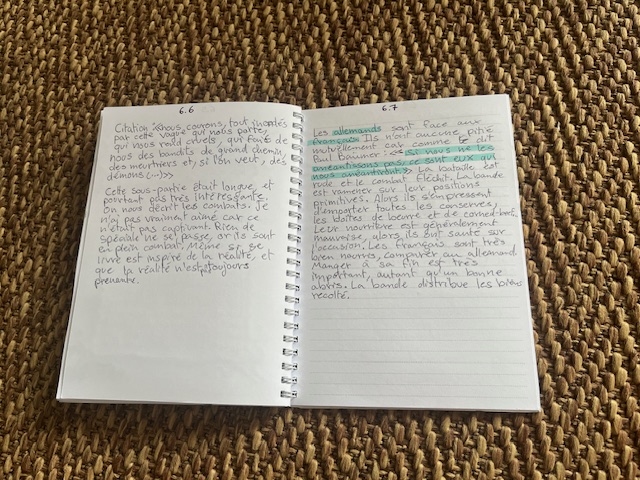 6.6
Citation: «Nous courons, tout inondés
par cette vague qui nous porte,
qui nous rend cruels, qui fait de
nous des bandits de grand chemin,
des meurtriers et, si l'on veut, des
démons (...)»
Cette sous-partie était longue, et
pourtant pas très intéressante.
On nous décrit les combats. Je
n'ai pas vraiment aimé car ce
n'était pas captivant. Rien de
spéciale ne se passe, or ils sont
en plein combat. Même si se
livre est inspiré de la réalité, et
que la réalité n'est toujours
prenante.
6.7
Les allemands sont face aux
français. Ils n'ont aucune pitié
mutuellement car comme le dit
Paul Baumer: «Si nous ne les
anéantissons pas, ce sont eux qui
nous anéantiront.» La bataille est
rude et le combat fléchit. La bande
est ramener sur leur positions
primitives. Alors ils s'empressent
d'emporter toutes les conserves,
les boîtes de beurre et de corned-beef.
Leur nourriture est généralement
mauvaise, alors ils ont saute sur
l'occasion. Les français sont très
bien nourris, comparer au allemand.
Manger à sa fin est très
important, autant qu'un bonne
abris. La bande distribue les biens
récolté.